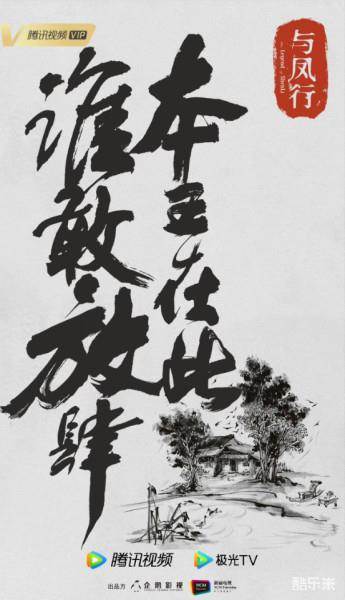 腾讯视频 VIP
与凤行
本王在此
谁敢放肆
腾讯视频
极光TV
出品方
企鹅影视
酷乐米